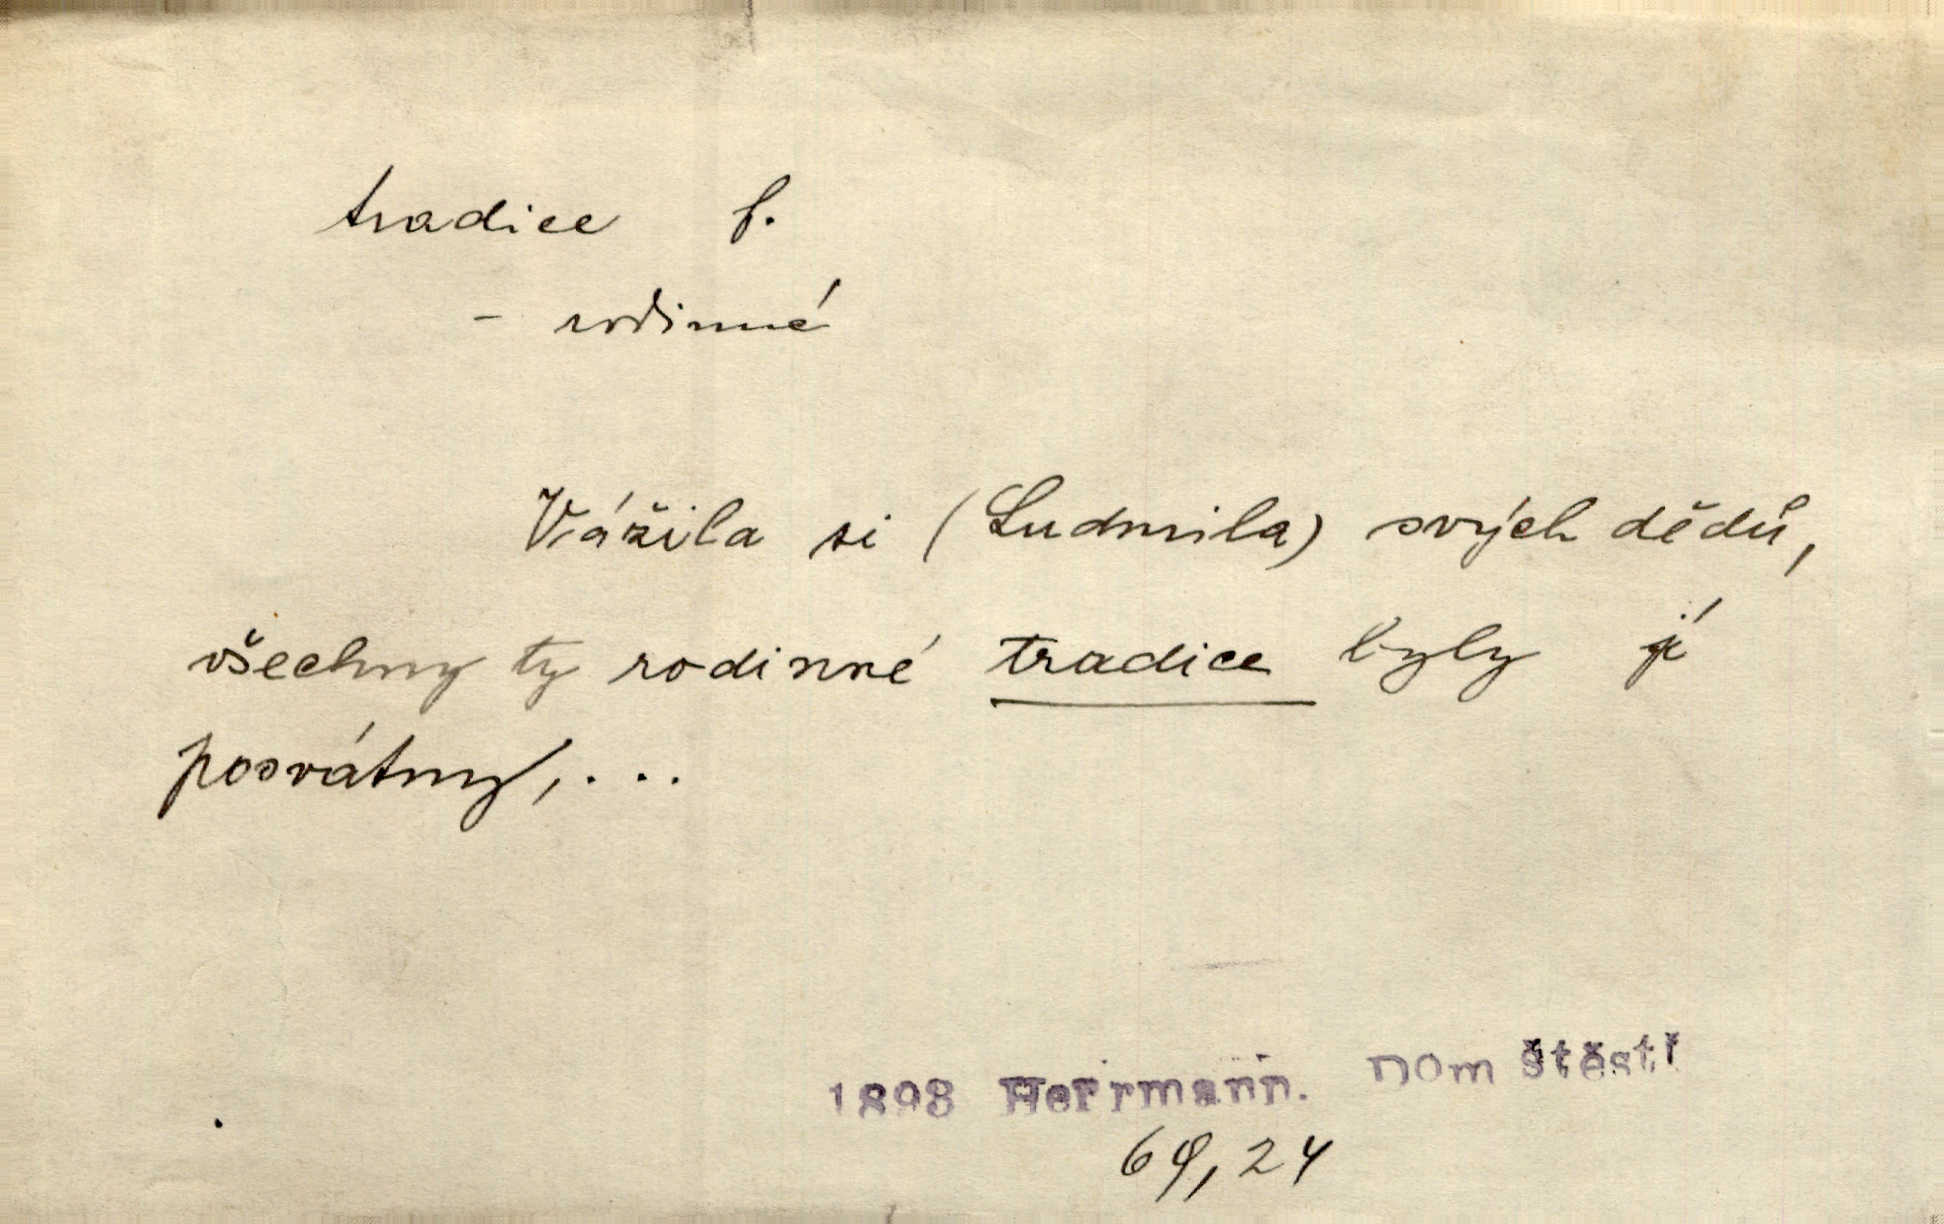 tradice f.
- rodinné
Vážila si (Ludmila) svých dědů,
všechny ty rodinné tradice byly jí
posvátny, . . .
1898 Herrmann. Dům štěstí
69,24